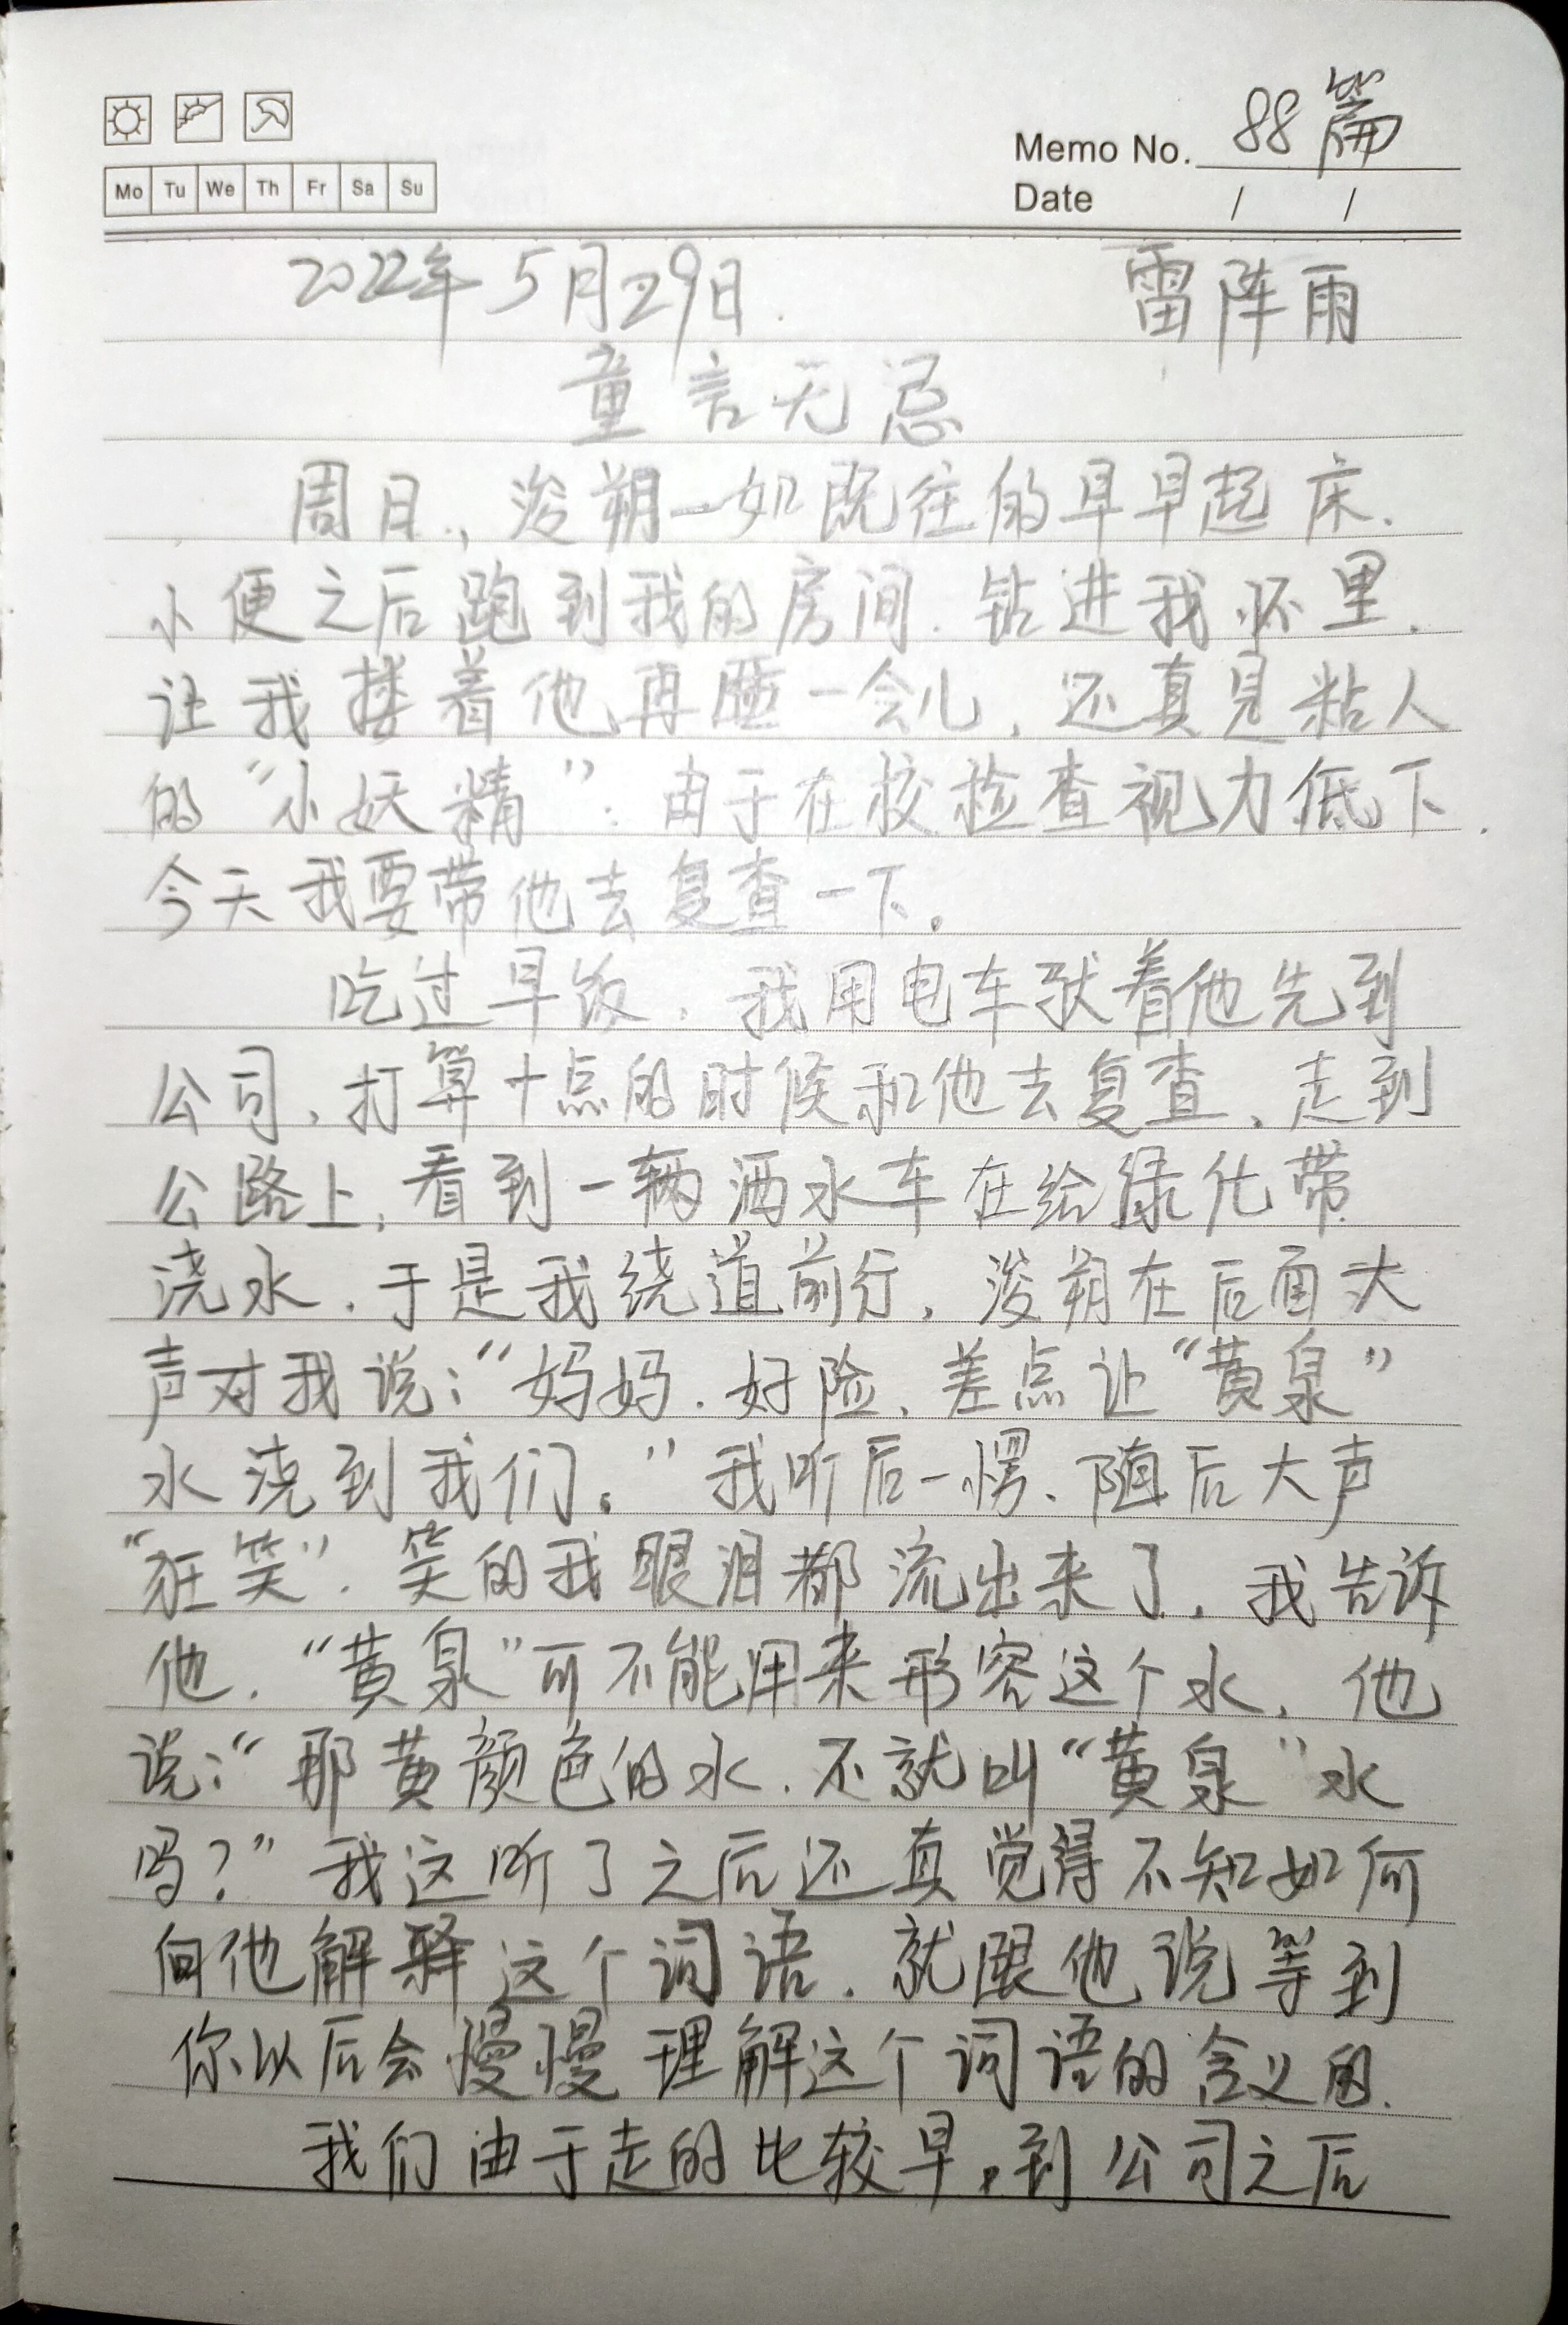 Memo No. 88篇
Mo Tu We Th Fr Sa Su
Date / /
2022年5月29日. 雷阵雨
童言无忌
周日,浚朔一如既往的早早起床.
小便之后跑到我的房间.钻进我怀里.
让我搂着他再睡一会儿,还真是粘人
的“小妖精”.由于在校检查视力低下.
今天我要带他去复查一下。
吃过早饭,我用电车驮着他先到
公司、打算十点的时候和他去复查、走到
公路上,看到一辆洒水车在给绿化带
浇水.于是我绕道前行,浚朔在后面大
声对我说:“妈妈.好险、差点让“黄泉”
水浇到我们。”我听后一愣、随后大声
“狂笑”.笑的我眼泪都流出来了,我告诉
他.“黄泉”可不能用来形容这个水,他
说:“那黄颜色的水.不就叫“黄泉”水
吗?”我这听了之后还真觉得不知如何
向他解释这个词语.就跟他说等到
你以后会慢慢理解这个词语的含义的.
我们由于走的比较早,到公司之后